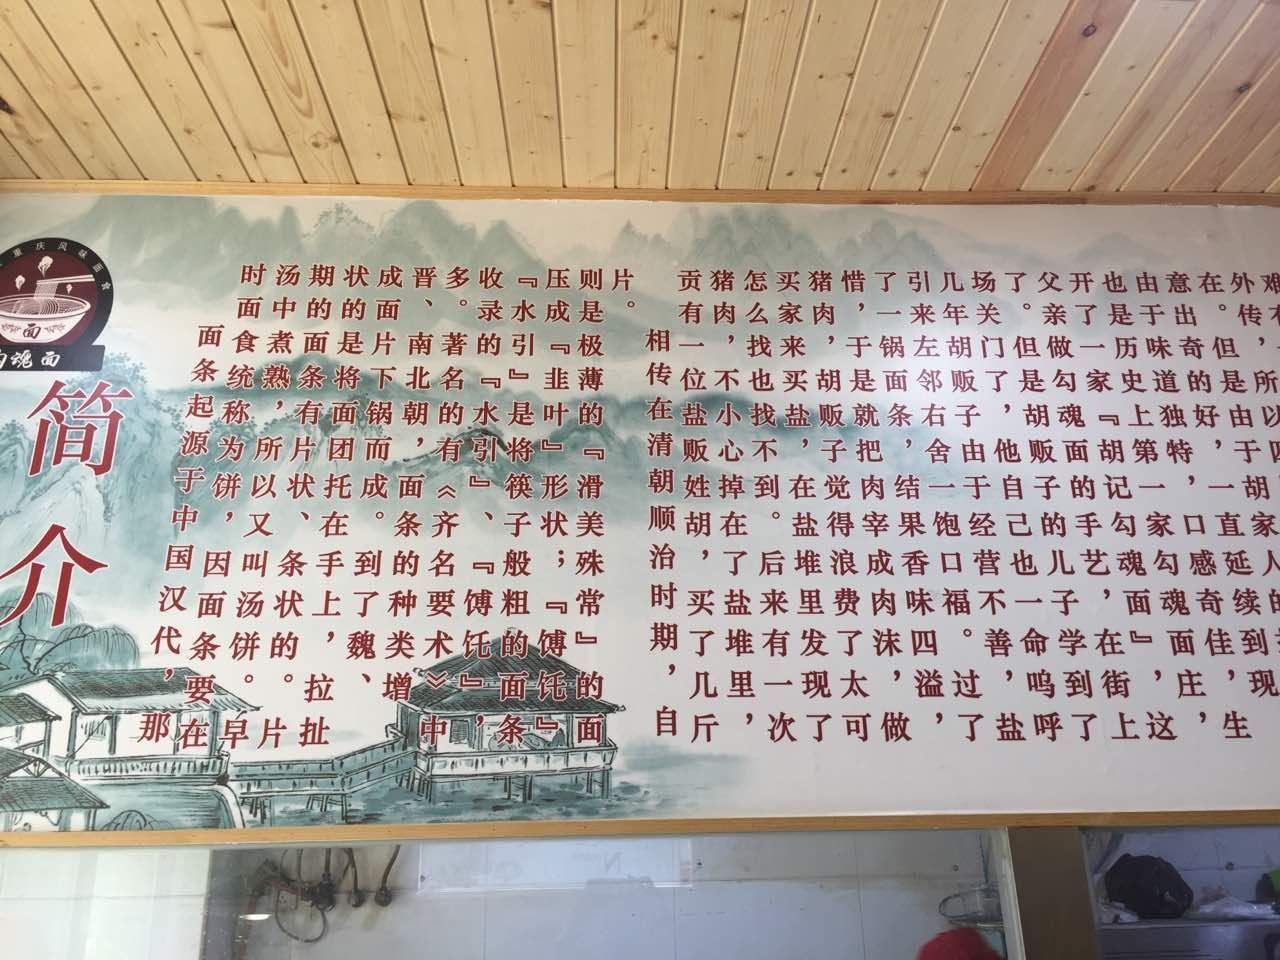 重庆风味面食
面
魂面
简介
面条起源于中国汉代，那
时面食统称为饼，因面条要在
汤中煮熟，所以又叫汤饼。早
期的面条有片状、条状的。片
状的是将面团托在手上，拉扯
成面片下锅而成。到了魏、
晋、南北朝，面条的种类增
多。著名的有《齐名要术》中
收录的『水引』、『馎饦』，
『水引』是将筷子般粗的面条
压成『韭叶』形状；『馎饦』
则是极薄的『滑美殊常』的面
片。
相传在清朝顺治时期，自
贡有一位盐贩姓胡，买了几斤
猪肉，不小心掉在了盐堆里，
怎么找也找不到。后来有一次
买家来买盐，在盐堆里发现了
猪肉，胡贩子觉得浪费了太可
惜，于是就把肉宰成肉沫，做
了一锅面条，结果香味四溢，
引来左邻右舍一饱口福。过了
几年胡贩子，由于经营不善，盐
场关门了，他自己也一命呜呼
了。但是胡贩子的儿子学到了
父亲做勾魂面的手艺，在街上
开了一家『胡记勾魂面』，这
也是历史上第一家勾魂面庄，
由于味道独特，口感奇佳，生
意出奇的好，一直延续到现
在。但是由于胡家人的
外传，所以四
难